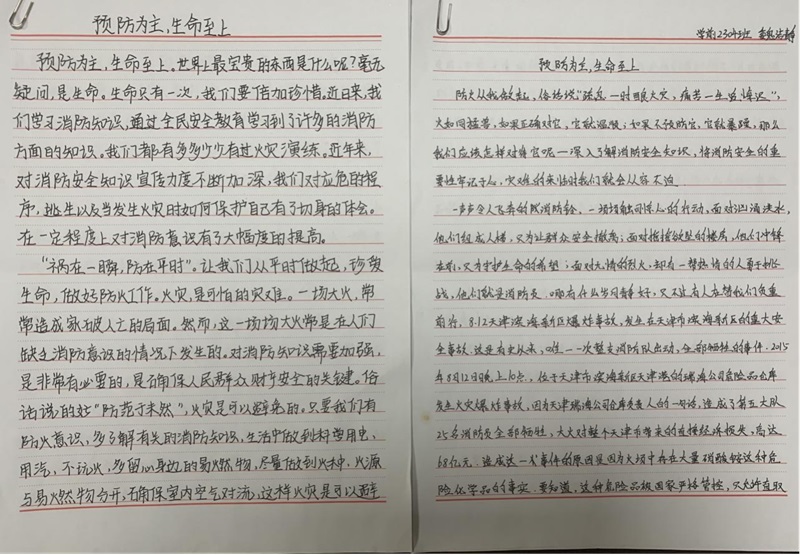 预防为主，生命至上
预防为主，生命至上。世界上最宝贵的东西是什么呢？毫无
疑问，是生命。生命只有一次，我们要倍加珍惜。近日来，我
们学习消防知识，通过全民安全教育学习到了许多的消防
方面的知识。我们都有多多少少有过火灾演练。近年来，
对消防安全知识宣传力度不断加深，我们对应危的程
序，逃生以及当发生火灾时如何保护自己有了切身的体会。
在一定程度上对消防意识有了大幅度的提高。
“祸在一瞬，防在平时”。让我们从平时做起，珍爱
生命，做好防火工作。火灾，是可怕的灾难。一场大火，常
常造成家破人亡的局面。然而，这一场场大火常是在人们
缺乏消防意识的情况下发生的。对消防知识需要加强，
是非常有必要的，是确保人民群众财产安全的关键。俗
话说的好“防范于未然”，火灾是可以避免的。只要我们有
防火意识，多了解有关的消防知识，生活中做到科学用电、
用汽，不玩火，多留心身边的易燃物，尽量做到火种，火源
与易燃物分开，确保室内空气对流，这样火灾是可以避
学前2304班
预防为主，生命至上
防火从我做起，俗话说“一时眼大灾，痛苦一生更悔迟”，
火如同猛兽，如果正确对它，它就温顺；如果不预防它，它就暴躁，那么
我们应该怎样对待它呢—深入了解消防安全知识，将消防安全的重
要性牢记于心，灾难的来临时我们就会从容不迫
一声声令人飞奔的消防铃，一场场触动人的行动，面对汹涌洪水，
他们组成人梯，只为让群众安全撤离；面对摇摇欲坠的楼房，他们冲锋
在前，只为守护生命的希望；面对大情的烈火，却有一替热情的人勇于挑
战，他们就是消防员，哪有什么岁月静好，只不过有人在替我们负重
前行，8.12天津滨海新区爆炸事故，发生在天津市滨海新区的重大安
全事故。这是有史以来，唯一一次整支消防队出动，全部牺牲的事件．2015
年8月12日晚上10点，位于天津市滨海新区天津港的瑞海公司危险品仓库
发生火灾爆炸事故，因为天津瑞海公司仓库负责人的一句话，造成了第五大队
25名消防员全部牺牲，大火对整个天津市带来的直接经济损失，高达
68亿元．造成这一事件的原因是因为火场中存在大量硝酸铵这种危
险化学品的事实．要知道，这种危险品被国家严格管控，只允许直取